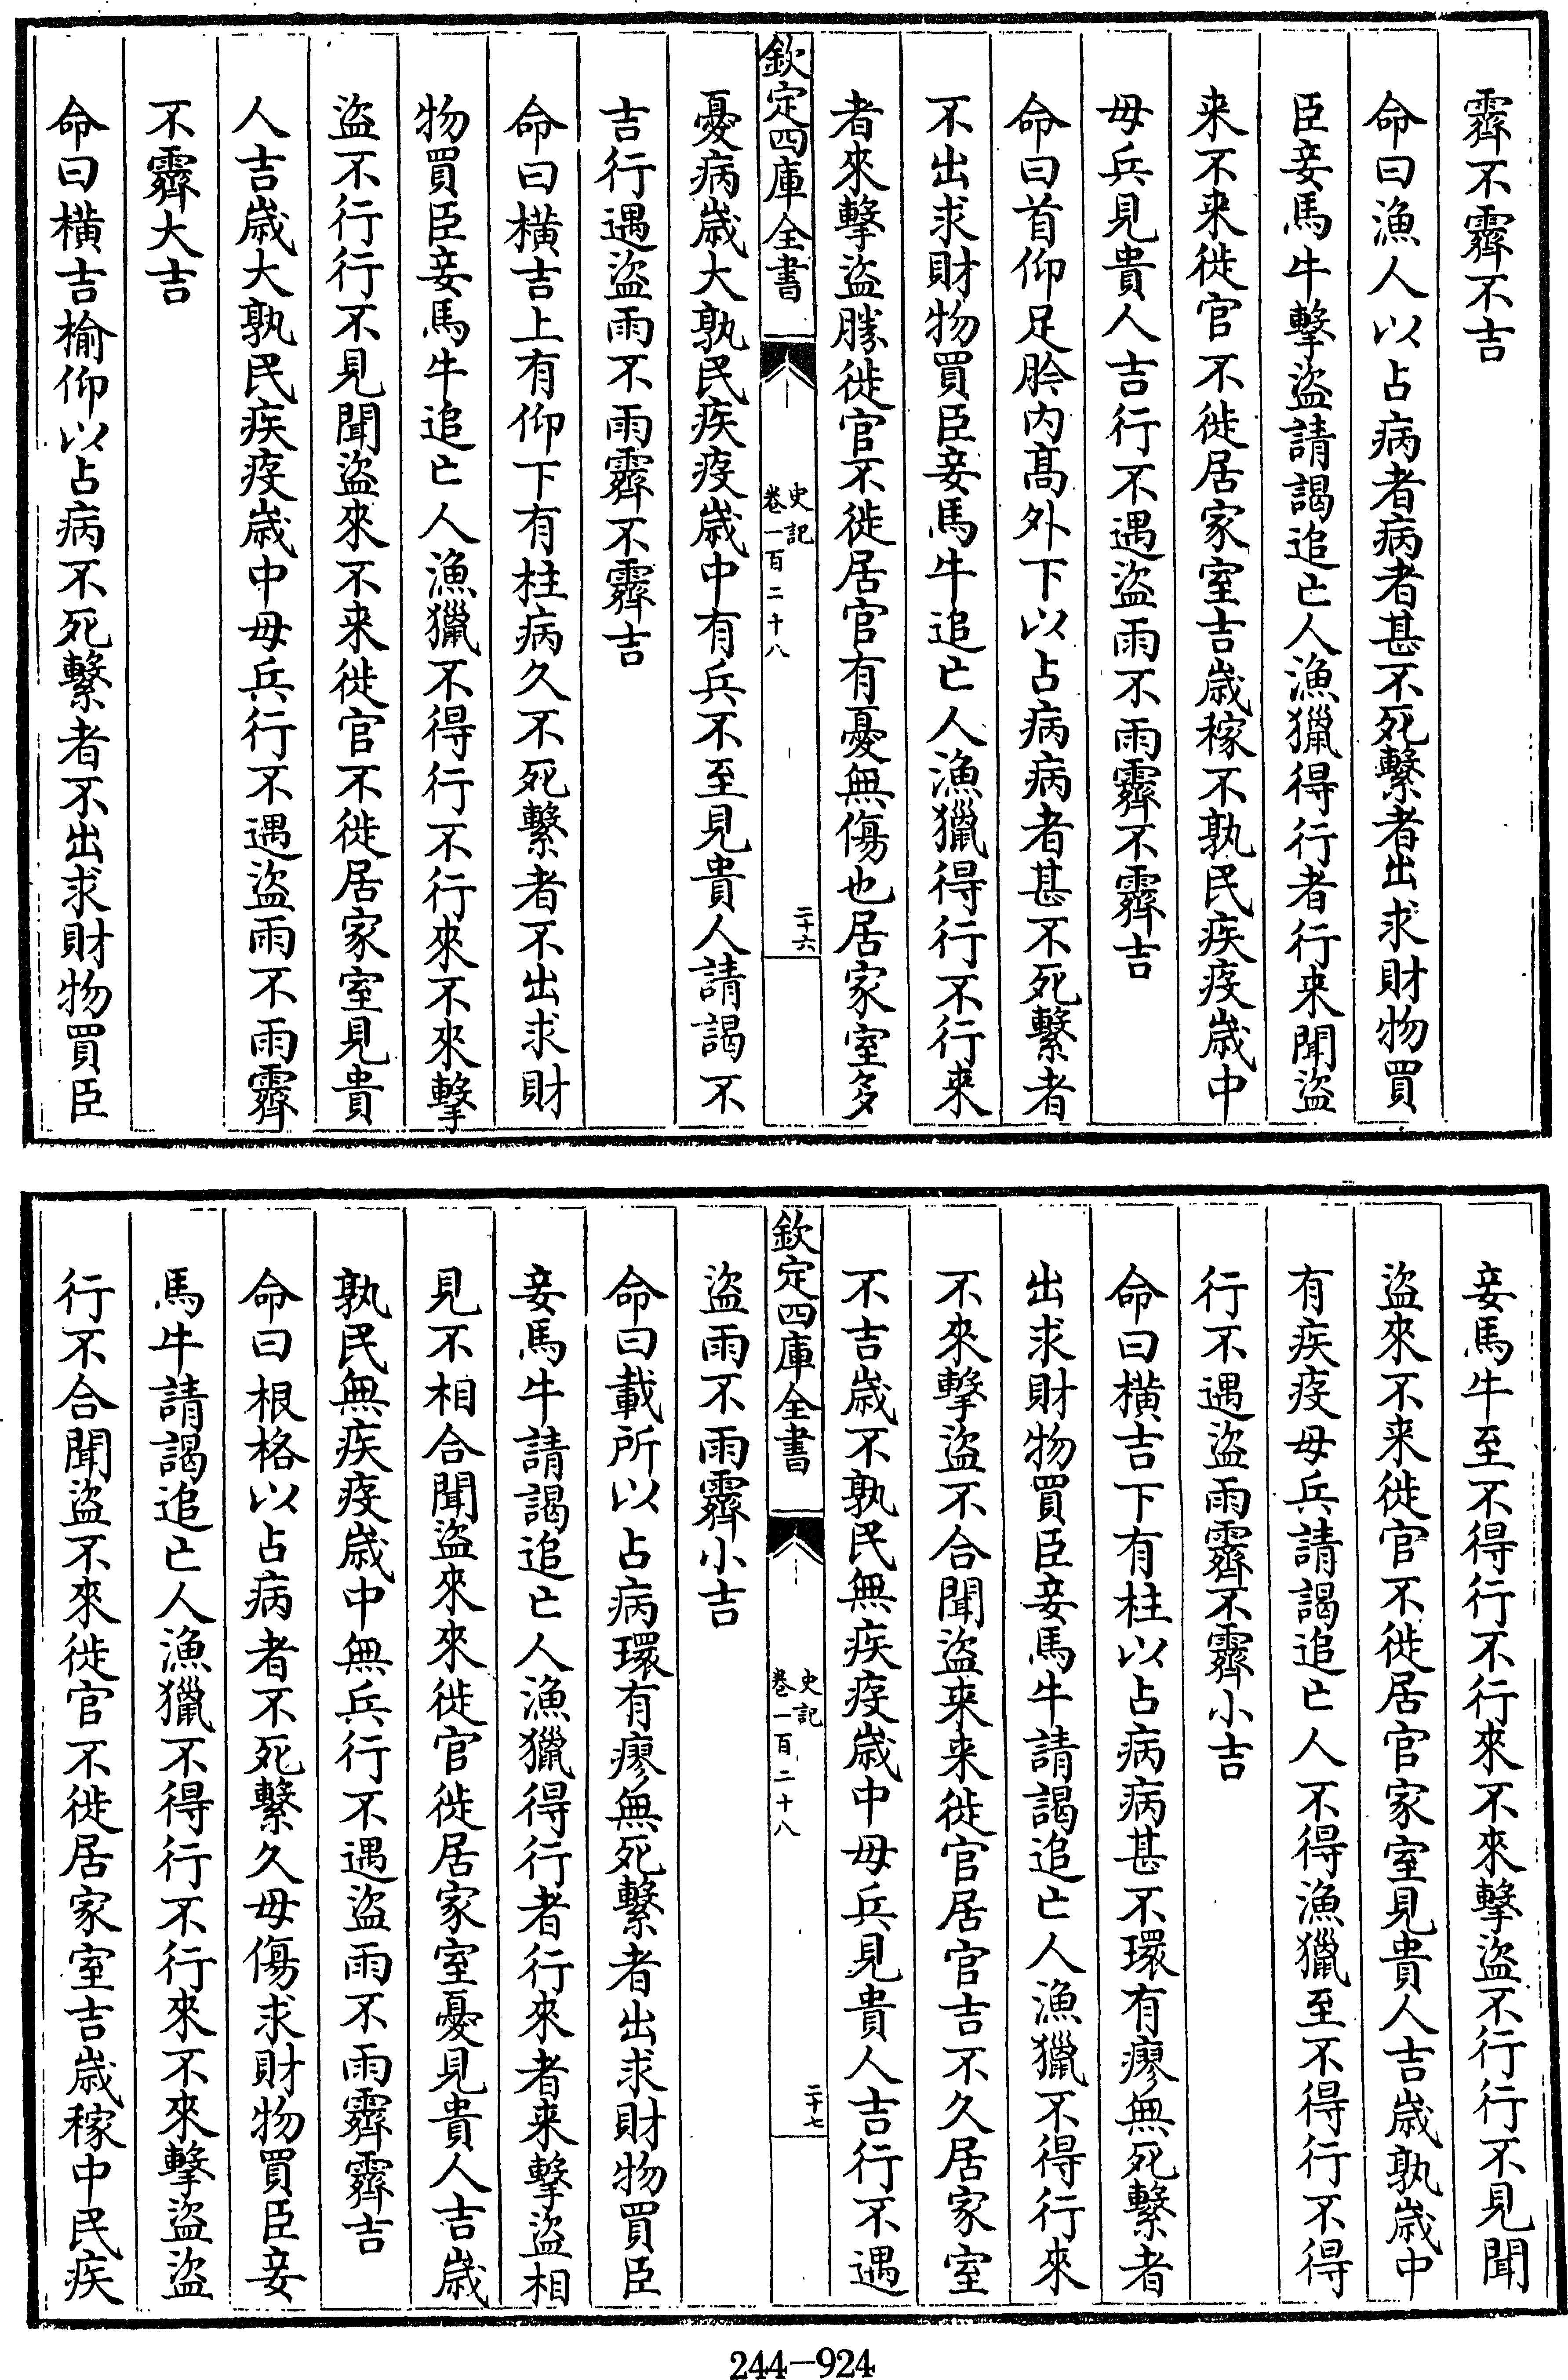 霽不霽不吉
命曰漁人以占病者病者甚不死繫者出求財物買
臣妾馬牛擊盜請謁追亡人漁獵得行者行来聞盜
来不来徙官不徙居家室吉歳稼不孰民疾疫歳中
毋兵見貴人吉行不遇盜雨不雨霽不霽吉
命曰首仰足肣内髙外下以占病病者甚不死繫者
不出求財物買臣妾馬牛追亡人漁獵得行不行来
者來擊盜勝徙官不徙居官有憂無傷也居家室多
欽定四庫全書
史記
卷一百二十八
二十六
憂病歳大孰民疾疫歳中有兵不至見貴人請謁不
吉行遇盜雨不雨霽不霽吉
命曰橫吉上有仰下有柱病久不死繫者不出求財
物買臣妾馬牛追亡人漁獵不得行不行來不來擊
盜不行行不見聞盜來不来徙官不徙居家室見貴
人吉歳大孰民疾疫歳中毋兵行不遇盜雨不雨霽
不霽大吉
命曰橫吉榆仰以占病不死繫者不出求財物買臣
妾馬牛至不得行不行來不來擊盜不行行不見聞
盜來不来徙官不徙居官家室見貴人吉歳孰歳中
有疾疫毋兵請謁追亡人不得漁獵至不得行不得
行不遇盜雨霽不霽小吉
命曰橫吉下有柱以占病病甚不環有瘳無死繫者
出求財物買臣妾馬牛請謁追亡人漁獵不得行來
不來擊盜不合聞盜来来徙官居官吉不久居家室
不吉歳不孰民無疾疫歳中毋兵見貴人吉行不遇
欽定四庫全書
史記
卷一百二十八
二十七
盜雨不雨霽小吉
命曰載所以占病環有瘳無死繫者出求財物買臣
妾馬牛請謁追亡人漁獵得行者行來者来擊盜相
見不相合聞盜來來徙官徙居家室憂見貴人吉歳
孰民無疾疫歳中無兵行不遇盜雨不雨霽霽吉
命曰根格以占病者不死繫久毋傷求財物買臣妾
馬牛請謁追亡人漁獵不得行不行來不來擊盜盜
行不合聞盜不來徙官不徙居家室吉歳稼中民疾
244-924